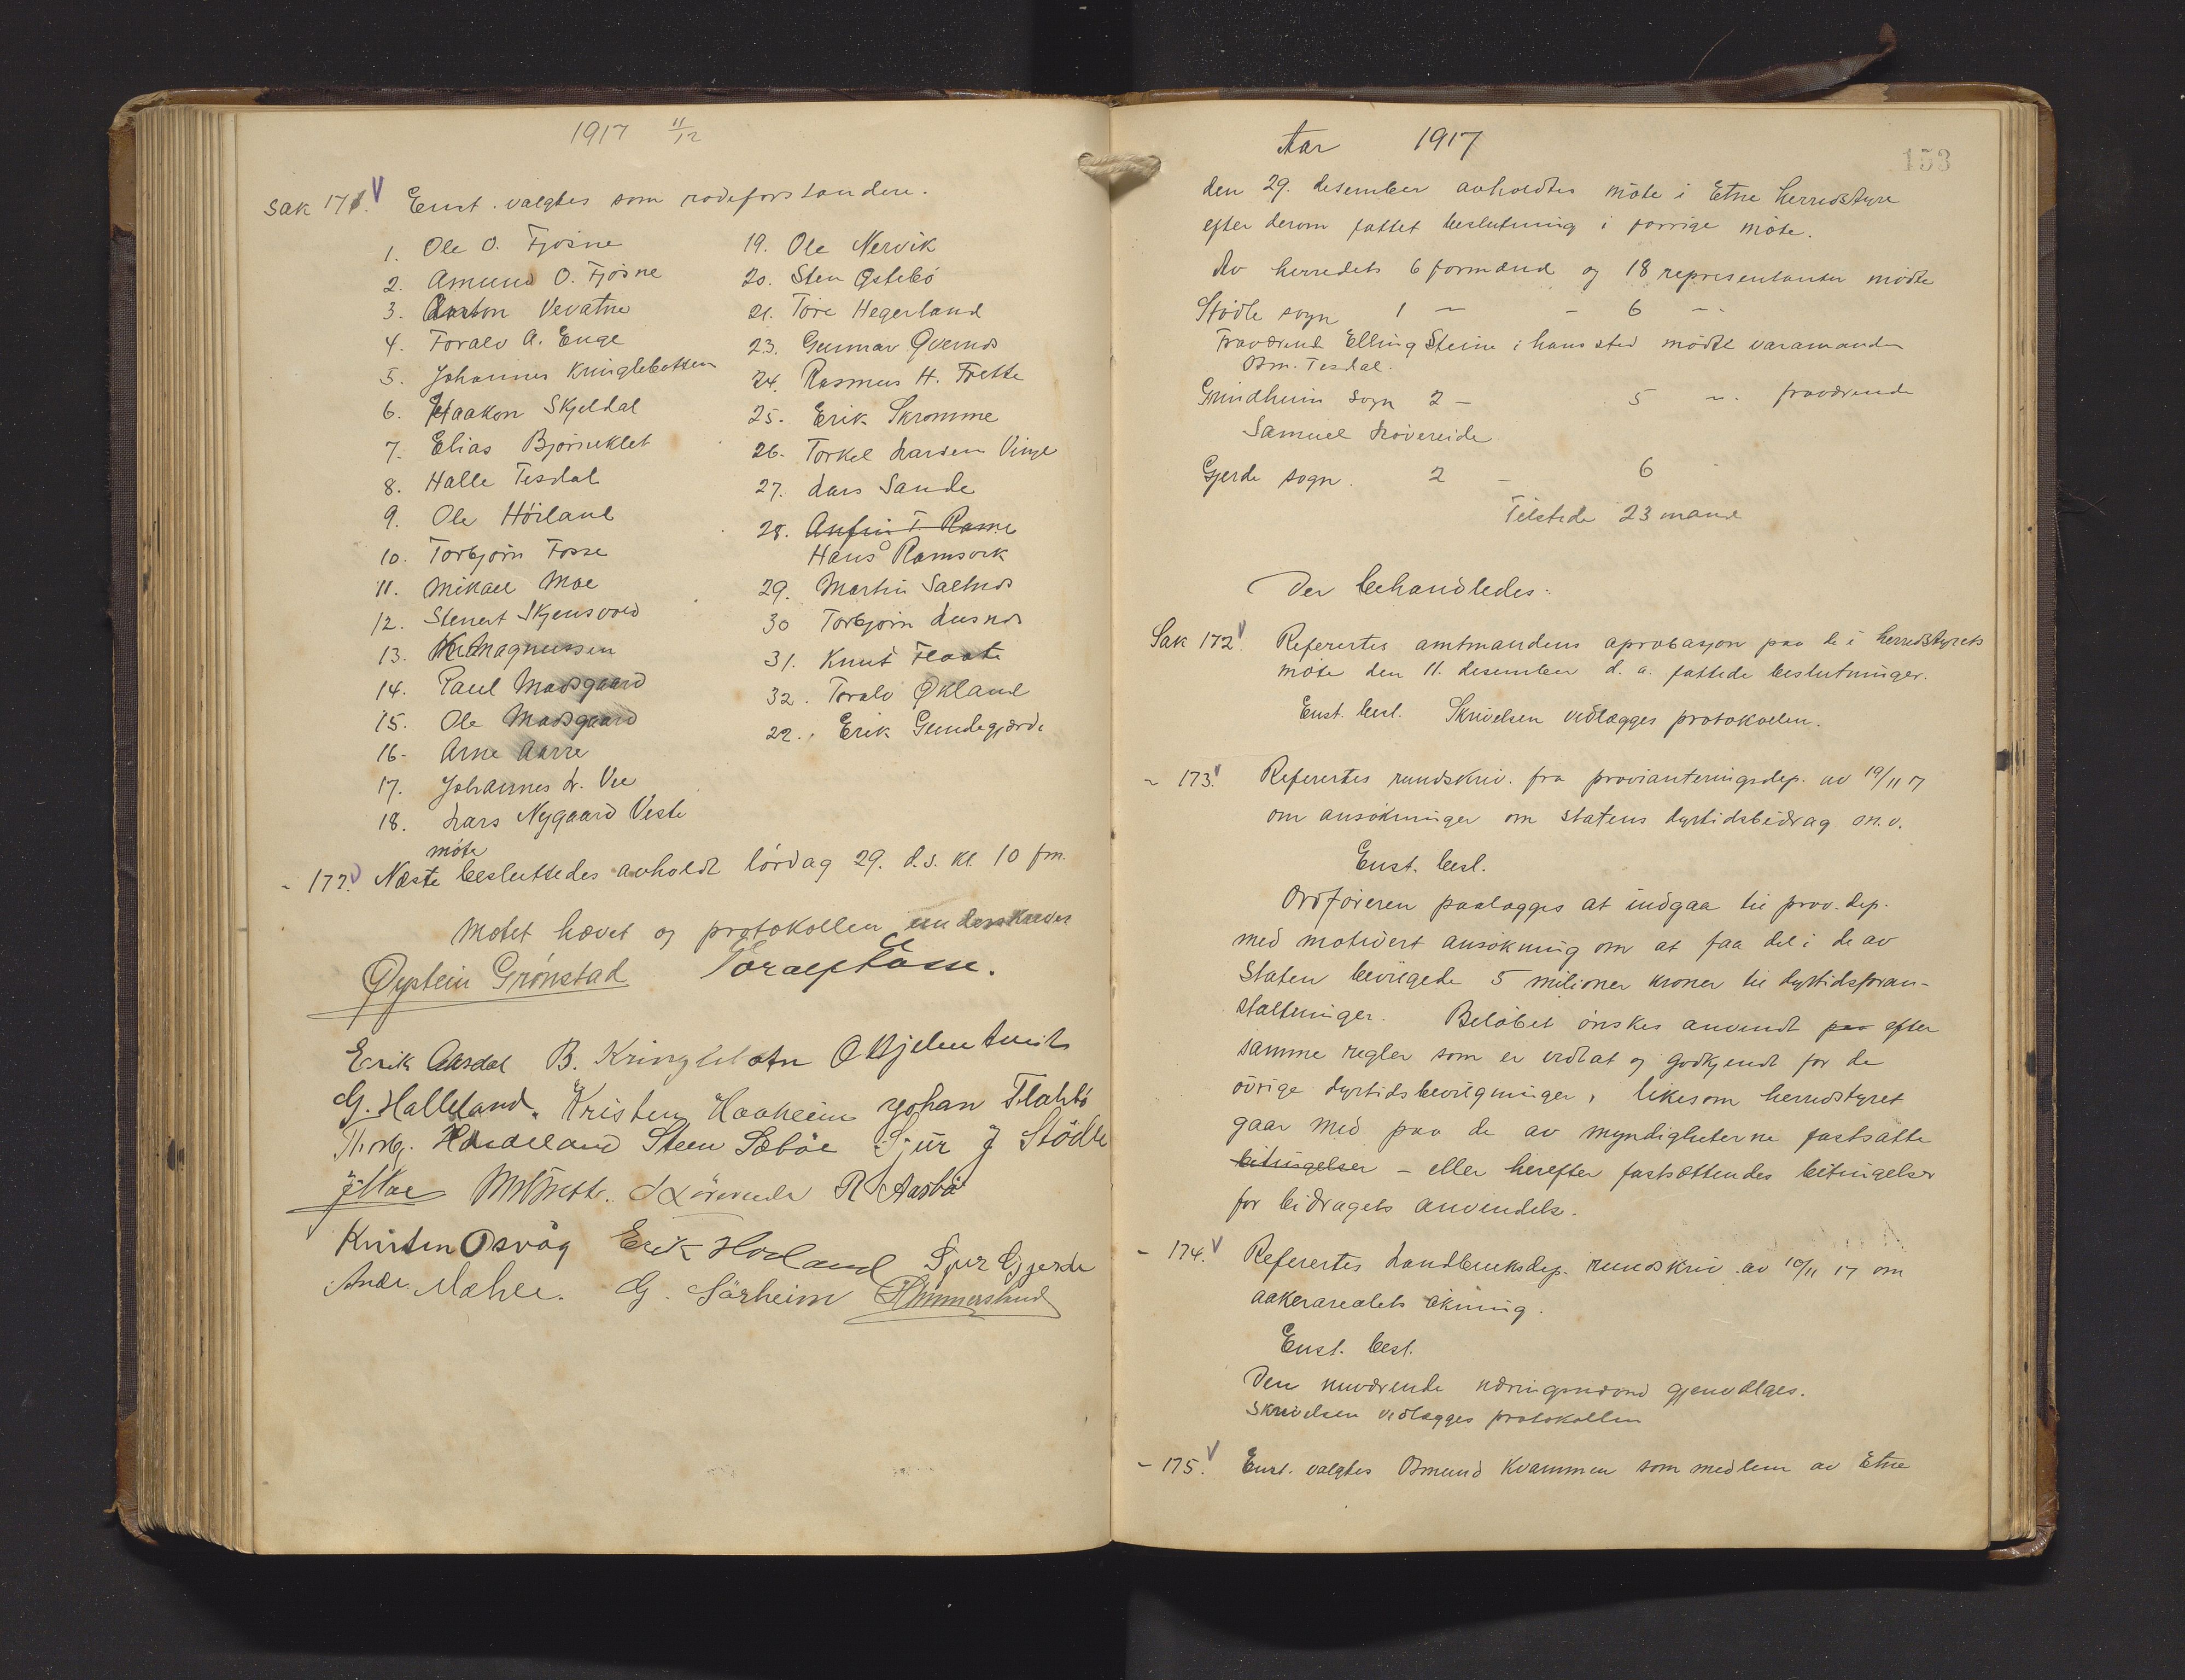 1917 11/12
Sak 171. Enst. valgtes som rodeforstandere.
1. Ole O. Fjøsne
2. Amund O. Fjøsne
3. Anton Vevatne
4. Toralv A. Enge
5. Johannes Kringlebotten
6. Haakon Skjeldal
7. Elias Bjørneklet
8. Halle Tesdal
9. Ole Høiland
10. Torbjørn Fosse
11. Mikael Moe
12. Stenert Skjensvold
13. Magnussen
14. Paul Madsgaard
15. Ole Madsgaard
16. Arne Aarre
17. Johannes L. Vee
18. Lars Nygaard Veste
19. Ole Nervik
20. Sten Østebø
21. Tore Hegerland
23. Gunnar Qvernds
24. Rasmus H. Frette
25. Erik Skromme
26. Torkel Larsen Vinje
27. Lars Sande
28. Anfin T. Rame
Hans Ramsvik
29. Martin Saltnds
30 Torbjørn Lusnds
31. Knut Flaate
32. Toralv Økland
22. Erik Grindegjærde
møte
- 172. Næste besluttedes avholdt lørdag 29. d.s. kl. 10 fm.
Møtet hævet og protokollen underskrevet
Øystein Grønstad
Erik Aasdal B. Kringlebotn
G. Halleland. Kristen Haaheim Johan Flatebø
Thorbj. Steen Sæbøe Sjur J Stødle
J Moe R Aasbø
Kristen Osvåg Erik Høiland Sjur Gjerde
Andr. Mæhle. G. Sørheim
Aar 1917
153
den 29. desember avholdtes møte i Etne herredstyre
efter derom fattet beslutning i forrige møte.
Av herredets 6 formænd og 18 representanter mødte
Stødle sogn 1 — - 6 —
Fraværende Elling Steine i hans sted mødte varamanden
Om. Tesdal.
Grindheim sogn 2 — 5 —. fraværende
Samuel Løvereide
Gjerde sogn. 2 - 6
Tilstede 23 mand
Der behandledes:
Sak 172. Refertes amtmandens aprobasjon paa de i herredstyrets
møte den 11. desember d. a. fattede beslutninger.
Enst. besl. Skrivelsen vedlægges protokollen.
- 173. Refertes rundskriv. fra provianteringsdep. av 19/11 17
om ansøkninger om statens dyrtidsbidrag m.v.
Enst. besl.
Ordføreren paalægges at indgaa til prov. dep.
med motivert ansøkning om at faa del i de av
Staten bevilgede 5 milioner kroner til dyrtidsforan-
staltninger. Beløbet ønskes anvendt paa efter
samme regler som er vedtat og godkjendt for de
øvrige dyrtidsbevilgninger, likesom herredstyret
gaar med paa de av myndigheterne fastsatte
betingelser - eller herefter fastsættendes betingelser
for bidragets anvendelse.
- 174. Refertes Landbruksdep. rundskriv av 10/11 17 om
aakerarealets økning.
Enst. besl.
Den nuværende næringsnævnd gjenvælges.
Skrivelsen vedlægges protokollen
- 175. Enst. valgtes Omund Kvammen som medlem av Etne